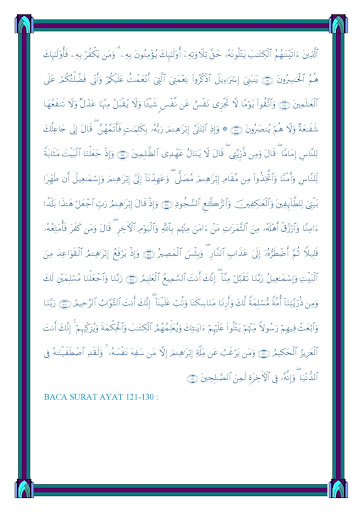 الَّذِينَ ءَاتَيْنَٰهُمُ الْكِتَٰبَ يَتْلُونَهُۥ حَقَّ تِلَاوَتِهِۦٓ أُو۟لَٰٓئِكَ يُؤْمِنُونَ بِهِۦ ۗ وَمَن يَكْفُرْ بِهِۦ فَأُو۟لَٰٓئِكَ
هُمُ الْخَٰسِرُونَ ﴿١٢١﴾ يَٰبَنِىٓ إِسْرَٰٓءِيلَ اذْكُرُوا۟ نِعْمَتِىَ الَّتِىٓ أَنْعَمْتُ عَلَيْكُمْ وَأَنِّى فَضَّلْتُكُمْ عَلَى
الْعَٰلَمِينَ ﴿١٢٢﴾ وَاتَّقُوا۟ يَوْمًا لَّا تَجْزِى نَفْسٌ عَن نَّفْسٍ شَيْـًٔا وَلَا يُقْبَلُ مِنْهَا عَدْلٌ وَلَا تَنفَعُهَا
شَفَٰعَةٌ وَلَا هُمْ يُنصَرُونَ ﴿١٢٣﴾ ۞ وَإِذِ ابْتَلَىٰٓ إِبْرَٰهِـۧمَ رَبُّهُۥ بِكَلِمَٰتٍ فَأَتَمَّهُنَّ ۖ قَالَ إِنِّى جَاعِلُكَ
لِلنَّاسِ إِمَامًا ۖ قَالَ وَمِن ذُرِّيَّتِى ۖ قَالَ لَا يَنَالُ عَهْدِى الظَّٰلِمِينَ ﴿١٢٤﴾ وَإِذْ جَعَلْنَا الْبَيْتَ مَثَابَةً
لِّلنَّاسِ وَأَمْنًا وَاتَّخِذُوا۟ مِن مَّقَامِ إِبْرَٰهِـۧمَ مُصَلًّى ۖ وَعَهِدْنَآ إِلَىٰٓ إِبْرَٰهِـۧمَ وَإِسْمَٰعِيلَ أَن طَهِّرَا
بَيْتِىَ لِلطَّآئِفِينَ وَالْعَٰكِفِينَ وَالرُّكَّعِ السُّجُودِ ﴿١٢٥﴾ وَإِذْ قَالَ إِبْرَٰهِـۧمُ رَبِّ اجْعَلْ هَٰذَا بَلَدًا
ءَامِنًا وَارْزُقْ أَهْلَهُۥ مِنَ الثَّمَرَٰتِ مَنْ ءَامَنَ مِنْهُم بِاللَّهِ وَالْيَوْمِ الْءَاخِرِ ۖ قَالَ وَمَن كَفَرَ فَأُمَتِّعُهُۥ
قَلِيلًا ثُمَّ أَضْطَرُّهُۥٓ إِلَىٰ عَذَابِ النَّارِ ۖ وَبِئْسَ الْمَصِيرُ ﴿١٢٦﴾ وَإِذْ يَرْفَعُ إِبْرَٰهِـۧمُ الْقَوَاعِدَ مِنَ
الْبَيْتِ وَإِسْمَٰعِيلُ رَبَّنَا تَقَبَّلْ مِنَّآ ۖ إِنَّكَ أَنتَ السَّمِيعُ الْعَلِيمُ ﴿١٢٧﴾ رَبَّنَا وَاجْعَلْنَا مُسْلِمَيْنِ لَكَ
وَمِن ذُرِّيَّتِنَآ أُمَّةً مُّسْلِمَةً لَّكَ وَأَرِنَا مَنَاسِكَنَا وَتُبْ عَلَيْنَآ ۖ إِنَّكَ أَنتَ التَّوَّابُ الرَّحِيمُ ﴿١٢٨﴾ رَبَّنَا
وَابْعَثْ فِيهِمْ رَسُولًا مِّنْهُمْ يَتْلُوا۟ عَلَيْهِمْ ءَايَٰتِكَ وَيُعَلِّمُهُمُ الْكِتَٰبَ وَالْحِكْمَةَ وَيُزَكِّيهِمْ ۚ إِنَّكَ أَنتَ
الْعَزِيزُ الْحَكِيمُ ﴿١٢٩﴾ وَمَن يَرْغَبُ عَن مِّلَّةِ إِبْرَٰهِـۧمَ إِلَّا مَن سَفِهَ نَفْسَهُۥ ۚ وَلَقَدِ اصْطَفَيْنَٰهُ فِى
الدُّنْيَا ۖ وَإِنَّهُۥ فِى الْءَاخِرَةِ لَمِنَ الصَّٰلِحِينَ ﴿١٣٠﴾
BACA SURAT AYAT 121-130 :